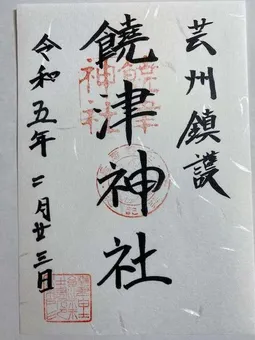 芸州鎮護
饒津神社
令和五年二月廿三日
饒津
神社